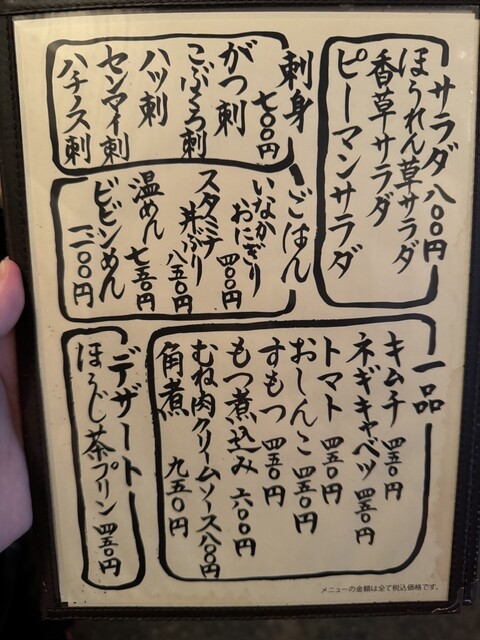 サラダ 八〇〇円
ほうれん草サラダ
香草サラダ
ピーマンサラダ
刺身 七〇〇円
がつ刺
こぶくろ刺
ハツ刺
センマイ刺
ハチノス刺
ごはん
いなかおにぎり 四〇〇円
スタミナ丼ぶり 八五〇円
温めん 七五〇円
ビビンめん 一二〇〇円
一品
キムチ 四五〇円
ネギキャベツ 四五〇円
トマト 四五〇円
おしんこ 四五〇円
すもつ 四五〇円
もつ煮込み 六〇〇円
むね肉クリームソース 八〇〇円
角煮 九五〇円
デザート
ほうじ茶プリン 四五〇円
メニューの金額は全て税込価格です。